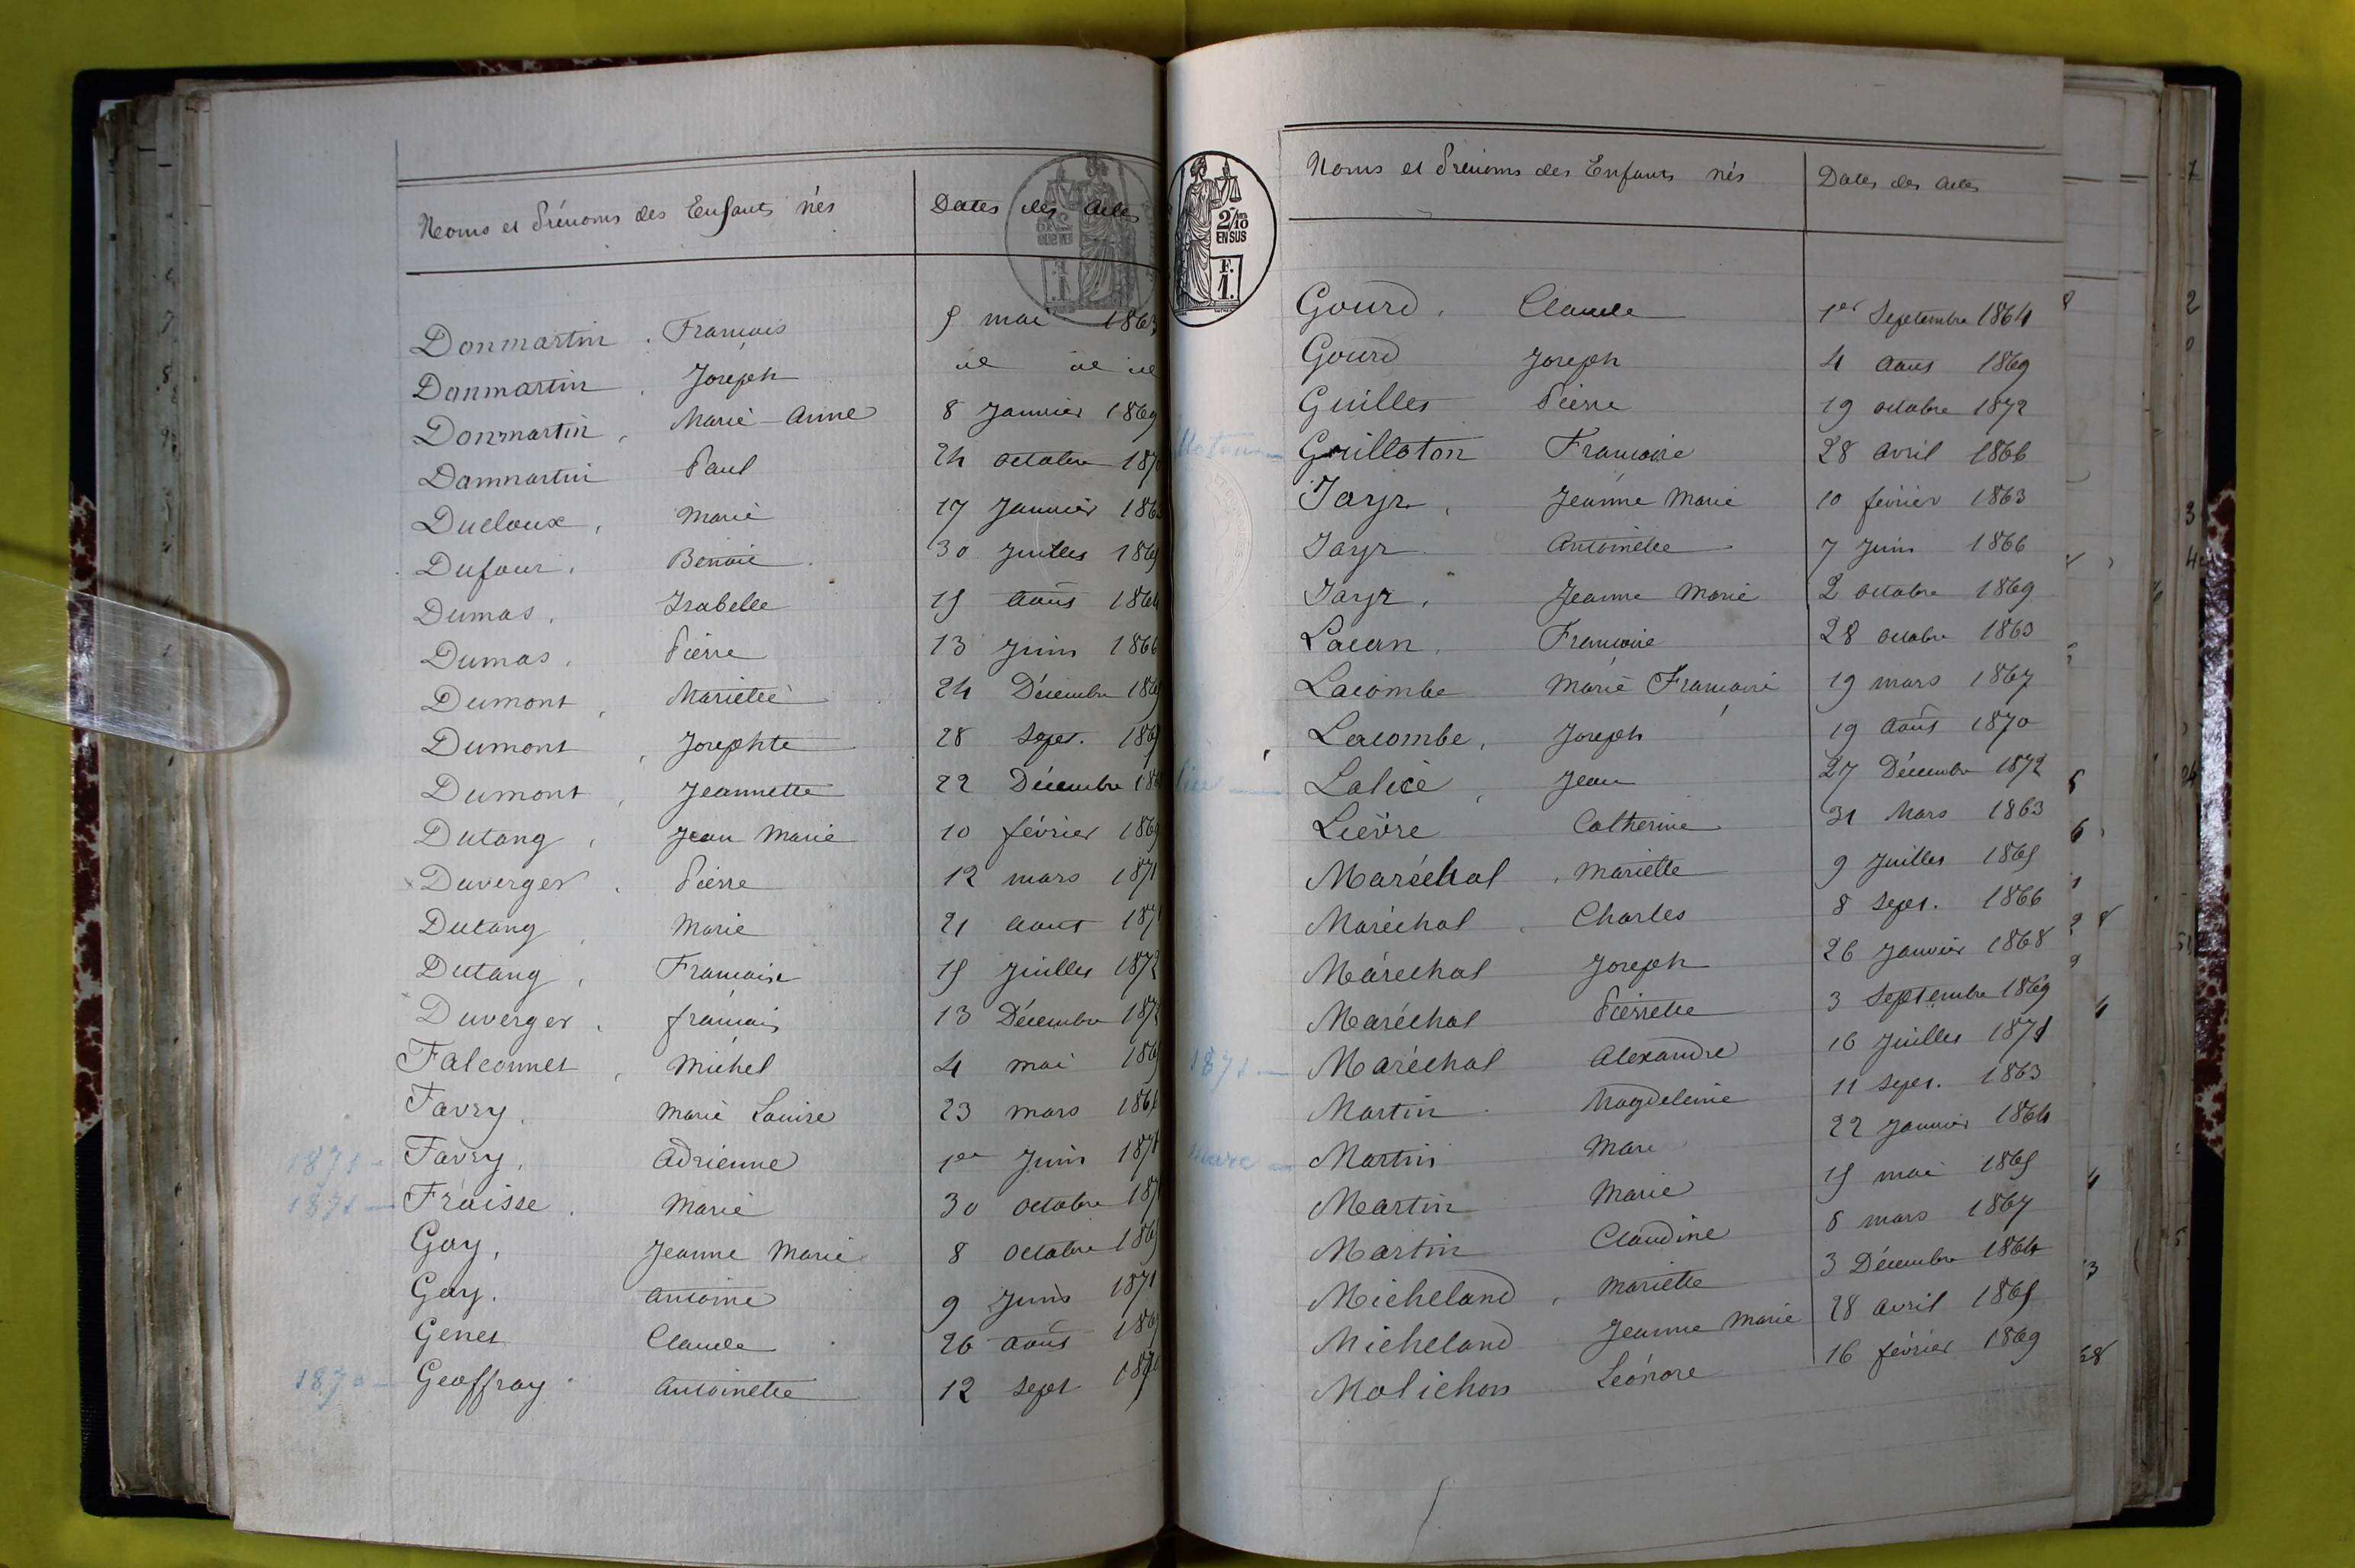 Noms et Prénoms des Enfants nés Dates des Actes
Donmartin, François 5 mai 1863
Donmartin, Joseph id id id
Donmartin, Marie-Anne 8 Janvier 1869
Dammartin Paul 24 octobre
Ducloux, Marie 17 Janvier
Dufour, Benoit 30 Juillet 1869
Dumas, Isabelle 15 Août 1864
Dumas, Pierre 13 Juin 1866
Dumont, Mariette 24 Décembre
Dumont, Josephte 28 Sept.
Dumont, Jeannette 22 Décembre
Dutang, Jean Marie 10 février 1869
Duverger, Pierre 12 mars 1871
Dutang, Marie 21 Aout 187
Dutang, Françoise 15 Juillet 1872
Duverger, françois 13 Décembre 187
Falconnet, Michel 4 mai 186
Favry, Marie Louise 23 mars 186
1871 - Favry, Adrienne 1er Juin 1871
1871 - Fraisse, Marie 30 octobre 187
Gay, Jeanne Marie 8 octobre 186
Gay, Antoine 9 Juin 1871
Genet Claude 26 Août 186
1870 - Geoffray Antoinette 12 Sept 1870
2/10 EN SUS
F. 1.
Noms et Prénoms des Enfants nés Dates des Actes
Gourd, Claude 1er Septembre 1864
Gourd Joseph 4 Août 1869
Guillet Pierre 19 octobre 1872
Guilloton Françoise 28 Avril 1866
Jayr, Jeanne Marie 10 février 1863
Jayr Antoinette 7 Juin 1866
Jayr, Jeanne Marie 2 octobre 1869
Lacan, Françoise 28 octobre 1863
Lacombe Marie Françoise 19 mars 1867
Lacombe, Joseph 19 Août 1870
Lalice, Jean 27 Décembre 1872
Lièvre Catherine 31 Mars 1863
Maréchal, Mariette 9 Juillet 1865
Maréchal, Charles 8 Sept. 1866
Maréchal Joseph 26 Janvier 1868
Maréchal Pierrette 3 Septembre 1869
1871 - Maréchal Alexandre 16 Juillet 1871
Martin Magdeleine 11 Sept. 1863
Marc - Martin Marc 22 Janvier 1864
Martin Marie 15 mai 1865
Martin Claudine 8 mars 1867
Micheland, Mariette 3 Décembre 1864
Micheland Jeanne Marie 28 Avril 1865
Molichon Léonore 16 février 1869